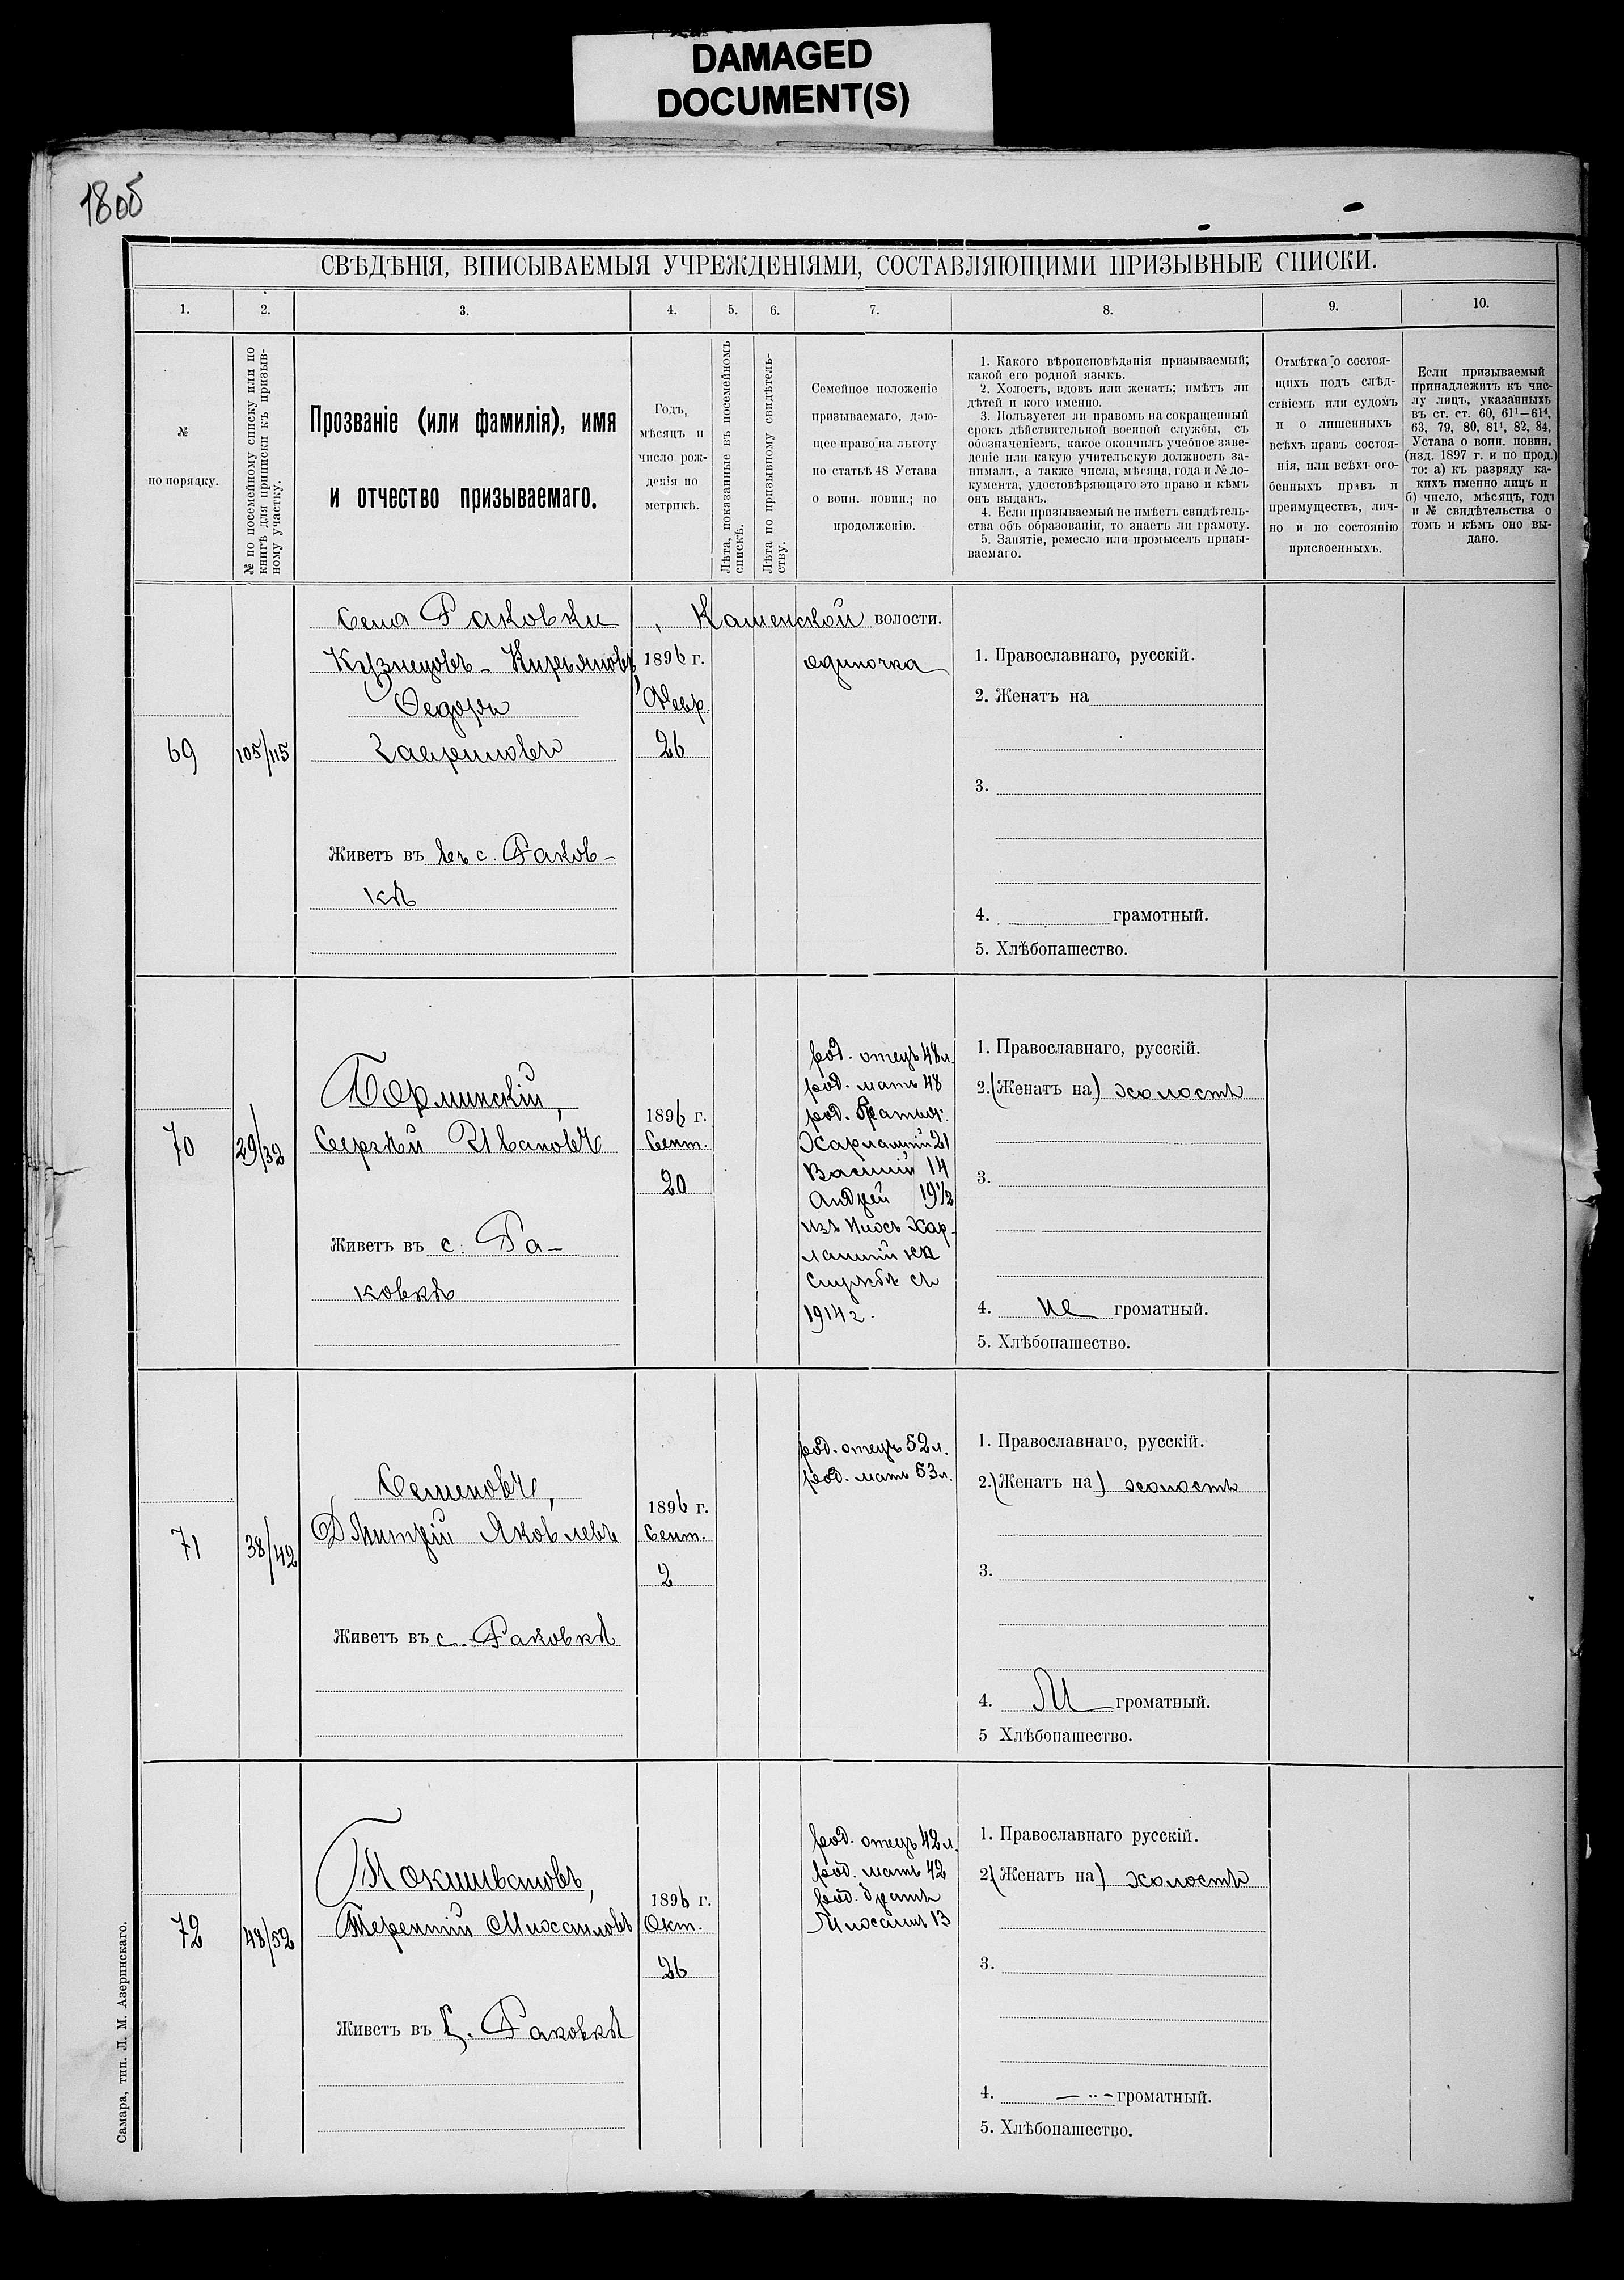 DAMAGED
DOCUMENT(S)
1805
СВѢДѢНІЯ, ВПИСЫВАЕМЫЯ УЧРЕЖДЕНІЯМИ, СОСТАВЛЯЮЩИМИ ПРИЗЫВНЫЕ СПИСКИ.
1. 2. 3. 4. 5. 6. 7. 8. 9. 10.
№
по порядку.
№ по посемейному списку или по
книгѣ для приписки къ призыв-
ному участку.
Прозваніе (или фамилія), имя
и отчество призываемаго.
Годъ,
мѣсяцъ и
число рож-
денія по
метрикѣ.
Лѣта, показанные въ посемейномъ
спискѣ.
Лѣта по призывному свидѣтель-
ству.
Семейное положеніе
призываемаго, даю-
щее право на льготу
по статьѣ 48 Устава
о воин. повин.; по
продолженію.
1. Какого вѣроисповѣданія призываемый;
какой его родной языкъ.
2. Холостъ, вдовъ или женатъ; имѣтъ ли
дѣтей и кого именно.
3. Пользуется ли правомъ на сокращенный
срокъ дѣйствительной военной службы, съ
обозначеніемъ, какое окончилъ учебное заве-
деніе или какую учительскую должность за-
нималъ, а также числа, мѣсяца, года и № до-
кумента, удостовѣряющаго это право и кѣмъ
онъ выданъ.
4. Если призываемый не имѣетъ свидѣтель-
ства объ образованіи, то знаетъ ли грамоту.
5. Занятіе, ремесло или промыселъ призы-
ваемаго.
Отмѣтка о состоя-
щихъ подъ слѣд-
ствіемъ или судомъ
и о лишенныхъ
всѣхъ правъ состоя-
нія, или всѣхъ осо-
бенныхъ правъ и
преимуществъ, лич-
но и по состоянію
присвоенныхъ.
Если призываемый
принадлежитъ къ чис-
лу лицъ, указанныхъ
въ ст. ст. 60, 61¹—61⁴,
63, 79, 80, 81¹, 82, 84,
Устава о воин. повин.
(изд. 1897 г. и по прод.)
то: а) къ разряду ка-
кихъ именно лицъ и
б) число, мѣсяцъ, годъ
и № свидѣтельства о
томъ и кѣмъ оно вы-
дано.
Села Раковки, Каменской волости.
69
105/115
Кузнецовъ - Кирьяновъ,
Федоръ
Гавриловъ
Живетъ въ въ с. Раков-
кѣ
1896 г.
Февр.
26
одиночка
1. Православнаго, русскій.
2. Женатъ на
3.
4. грамотный.
5. Хлѣбопашество.
70
29/32
Борминскій,
Сергѣй Ивановъ
Живетъ въ с. Ра-
ковкѣ
1896 г.
Сент.
20
род. отецъ 48 л.
род. мать 48
род. братья:
Харлампій 21
Василій 14
Андрей 19½
изъ нихъ Хар-
лампій на
службѣ съ
1914 г.
1. Православнаго, русскій.
2. (Женатъ на) холостъ
3.
4. не громатный.
5. Хлѣбопашество.
71
38/42
Семеновъ,
Дмитрій Яковлевъ
Живетъ въ с. Раковкѣ
1896 г.
Сент.
2
род. отецъ 52 л.
род. мать 53 л.
1. Православнаго, русскій.
2. (Женатъ на) холостъ
3.
4. громатный.
5 Хлѣбопашество.
72
48/52
Токшивановъ,
Терентій Михаиловъ
Живетъ въ с. Раковкѣ
1896 г.
Окт.
26
род. отецъ 42 л.
род. мать 42
род. братъ
Михаилъ 13
1. Православнаго русскій.
2. (Женатъ на) холостъ
3.
4. громатный.
5. Хлѣбопашество.
Самара, тип. Л. М. Азеринскаго.